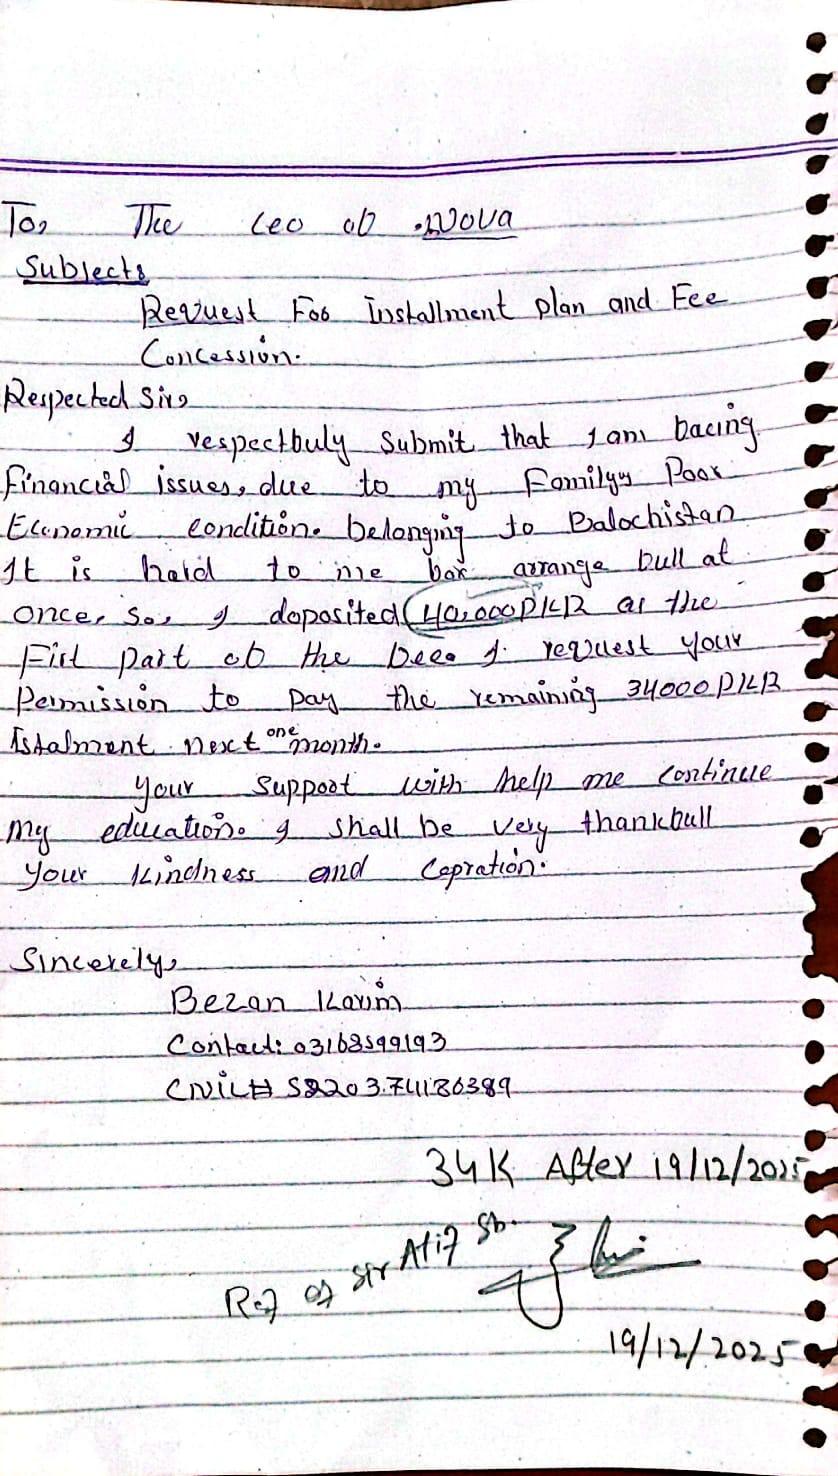 To, The Ceo of NOVA
Subject:
Request For Installment plan and Fee
Concession.
Respected Sir,
I respectfuly Submit that I am facing
financial issues, due to my Family, Poor
Economic condition. belonging to Balochistan
It is hard to me for arrange full at
once, So, I doposited (40,000 PKR as the
First part of the fees. I request your
Permission to pay the remaining 34000 PKR
Istalment next one month.
your support with help me continue
my education. I shall be very thankfull
your kindness and Copration.
Sincerely,
Bezan Karim
Contact: 03163599193
CNIC#
34K After 19/12/2025
Ref of Sir Atif Sb.
19/12/2025